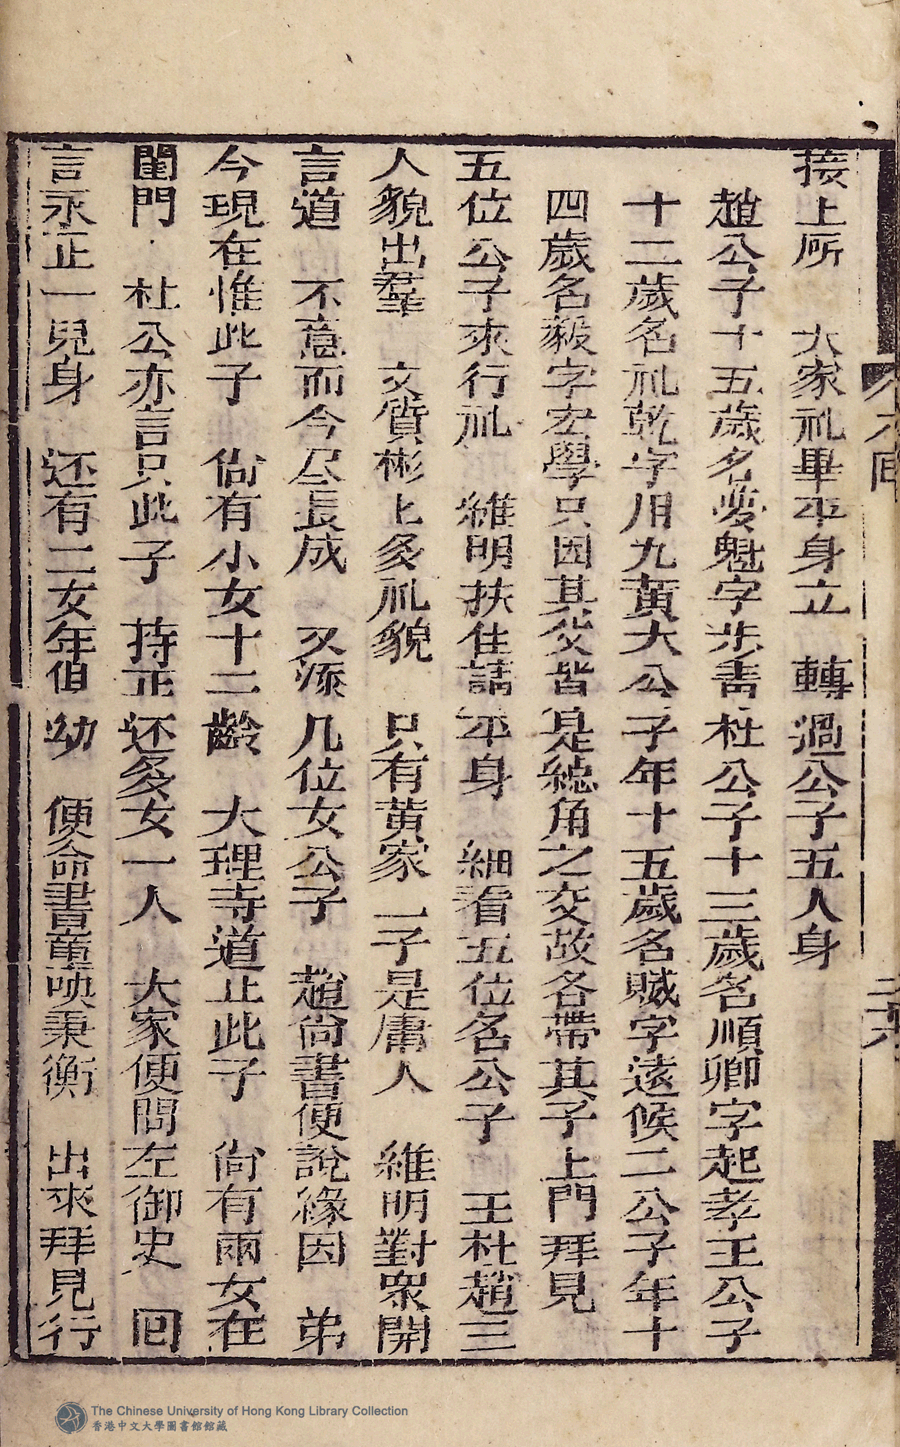 接上所　大家礼畢平身立　轉過公子五人身
趙公子十五歲名夢魁字步青杜公子十三歲名順卿字起孝王公子
十二歲名礼乾字用九黃大公子年十五歲名賦字遠候二公子年十
四歲名毅字宏學只因其父皆是總角之交故各帶其子上門拜見
五位公子來行礼　維明扶住請平身　細看五位名公子　王杜趙三
人貌出羣　文質彬上多礼貌　只有黃家一子是庸人　維明對衆開
言道　不意而今尽長成　又添几位女公子　趙尙書便說緣因　弟
今現在惟此子　尙有小女十二齡　大理寺道止此子　尙有兩女在
閨門　杜公亦言只此子　持正还多女一人　大家便問左御史　囘
言永正一兒身　还有二女年伯幼　便命書童唤秉衡　出來拜見行
六囘
The Chinese University of Hong Kong Library Collection
香港中文大學圖書館館藏